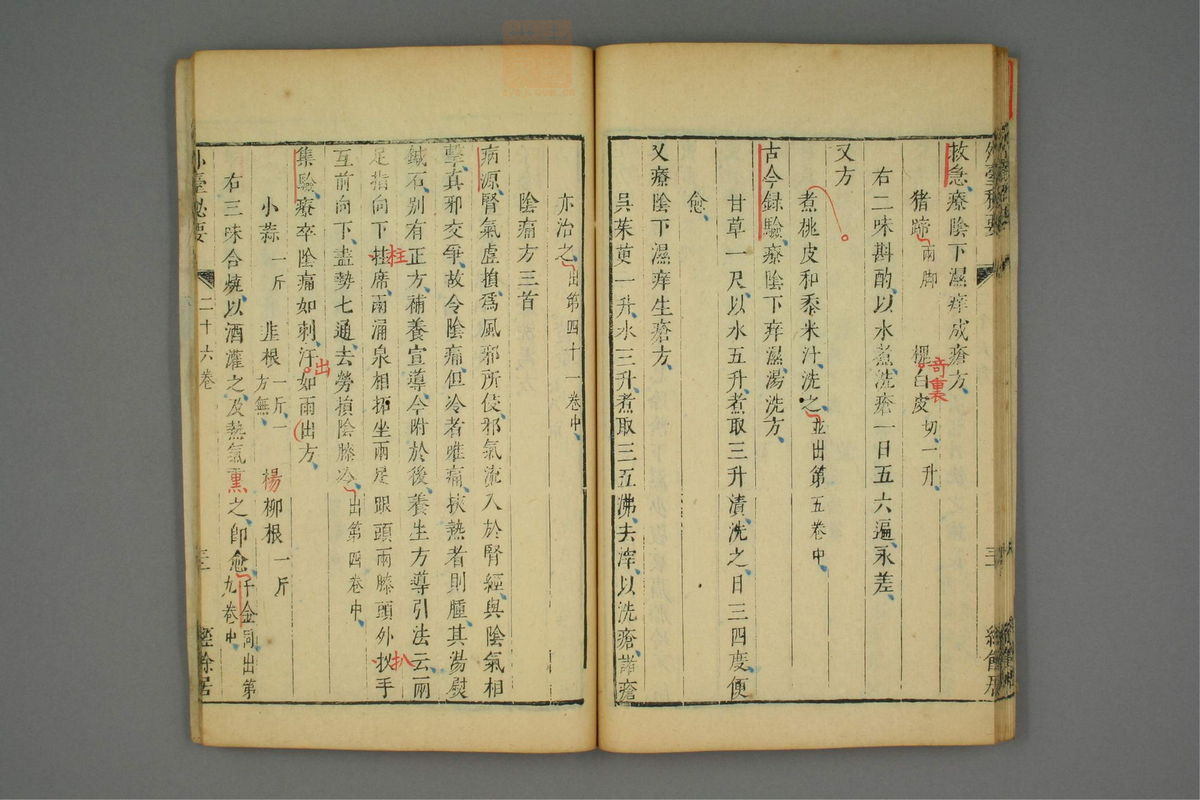 救急療陰下濕痒成瘡方
猪蹄兩脚 槵白皮切一升
竒裏
右二味斟酌以水煮洗瘡一日五六遍永差
又方
煮桃皮和黍米汁洗之並出第五卷中
古今録驗療陰下痒濕湯洗方
甘草一尺以水五升煮取三升漬洗之日三四度便
愈
又療陰下濕痒生瘡方
吳茱萸一升水三升煮取三五沸去滓以洗瘡諸瘡
亦治之出第四十一卷中
陰痛方三首
病源腎氣虛損爲風邪所侵邪氣流入於腎經與陰氣相
擊真邪交爭故令陰痛但冷者唯痛挾熱者則腫其湯熨
鍼石别有正方補養宣導今附於後養生方導引法云兩
足指向下拄席兩涌泉相拓坐兩足跟頭兩膝頭外扠手
柱
扒
互前向下盡勢七通去勞損陰膝冷出第四卷中
集驗療卒陰痛如刺汗如雨出方
出
小蒜一斤 韭根一斤一方無 楊柳根一斤
右三味合燒以酒灌之及熱氣熏之即愈千金同出第九卷中
外臺秘要 二十六卷 三 經餘居